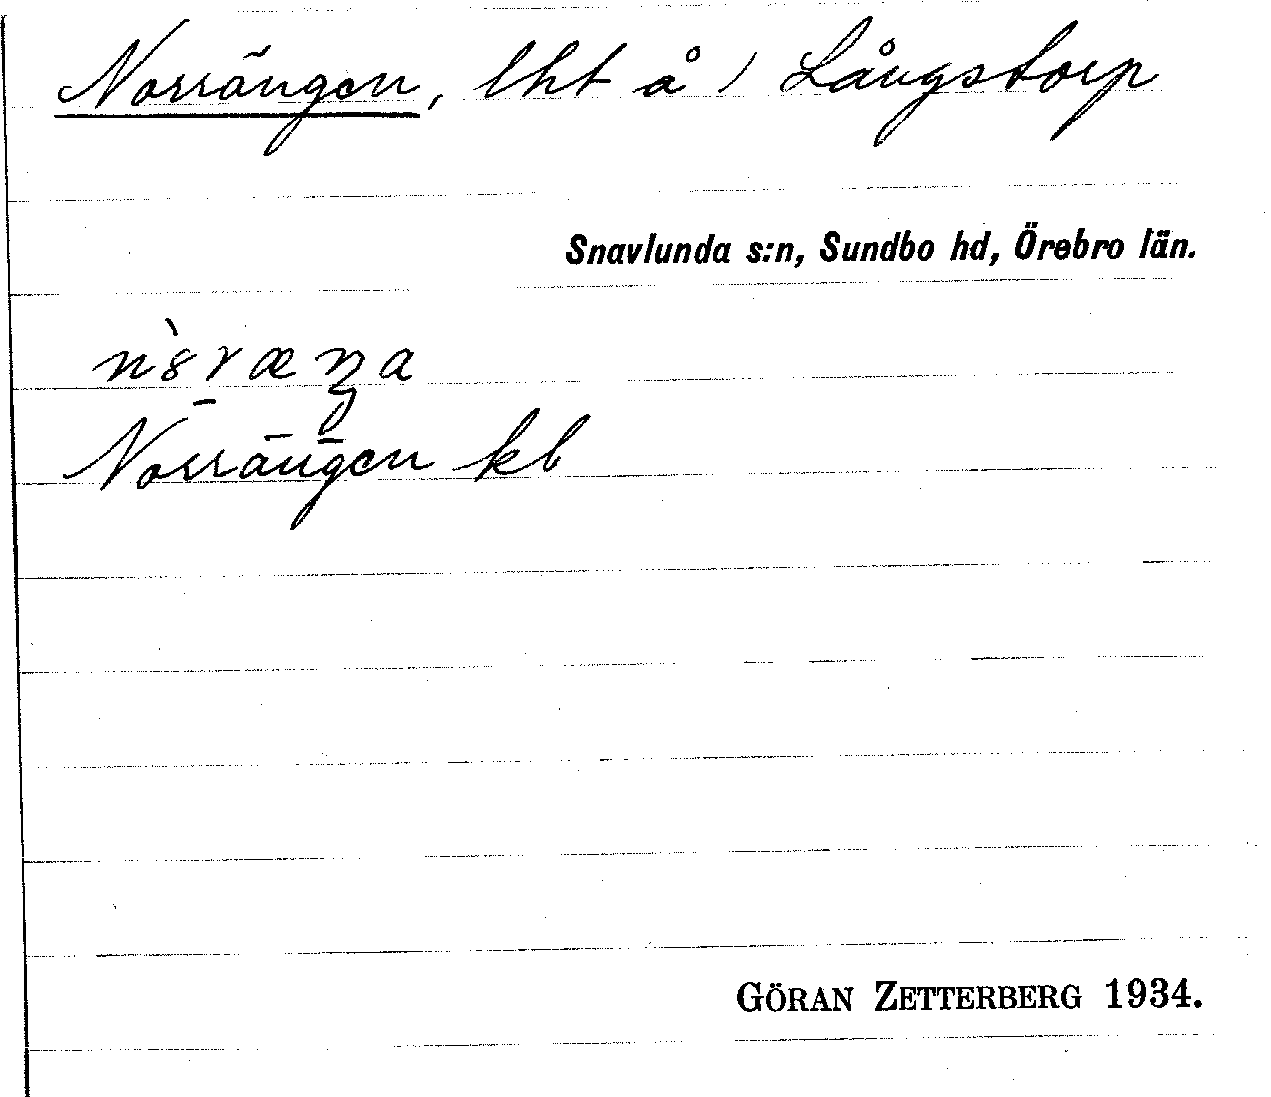 Norrängen, lht å 1 Långstorp
Snavlunda s:n, Sundbo hd, Örebro län.
Norrängen kb
GÖRAN ZETTERBERG 1934.